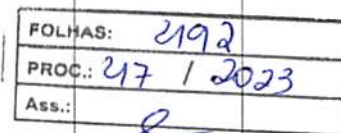 FOLHAS: 2192
PROC.: 217 / 2023
Ass.: